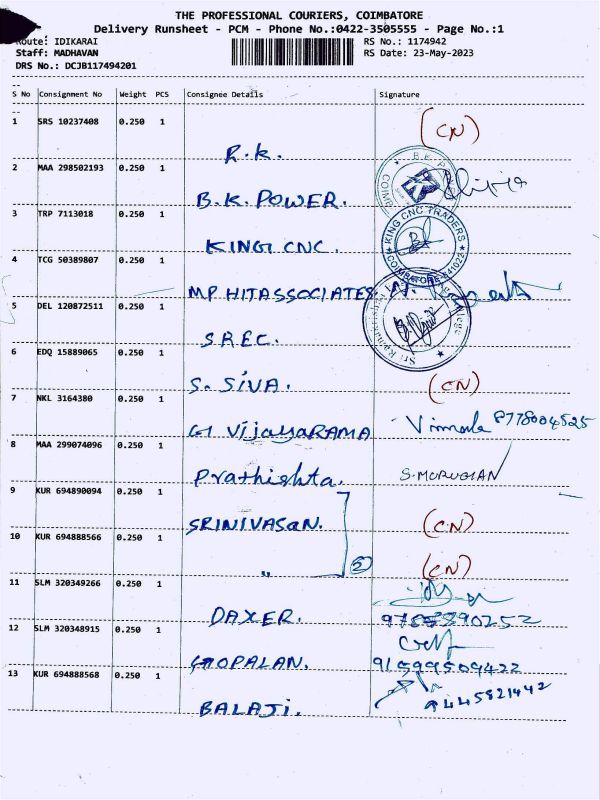 THE PROFESSIONAL COURIERS, COIMBATORE
Delivery Runsheet - PCM - Phone No.:0422-3505555 - Page No.:1
Route: IDIKARAI RS No.: 1174942
Staff: MADHAVAN RS Date: 23-May-2023
DRS No.: DCJB117494201
S No Consignment No Weight PCS Consignee Details Signature
1 SRS 10237408 0.250 1
R.K. (CN)
2 MAA 298502193 0.250 1
B.K. POWER.
3 TRP 7113018 0.250 1
KING CNC. KING CNC TRADERS COIMBATORE-641022
4 TCG 50389807 0.250 1
MP HITASSOCIATES
5 DEL 120872511 0.250 1
SREC.
6 EDQ 15889065 0.250 1
S. SIVA. (CN)
7 NKL 3164380 0.250 1
G Vijayarama Vimala 8778004525
8 MAA 299074096 0.250 1
Prathishta. S.MURUGAN
9 KUR 694890094 0.250 1
SRINIVASAN. (CN)
10 KUR 694888566 0.250 1
" (2) (CN)
11 SLM 320349266 0.250 1
DAXER.
12 SLM 320348915 0.250 1
GOPALAN. 919999509422
13 KUR 694888568 0.250 1
BALAJI. 9445821442